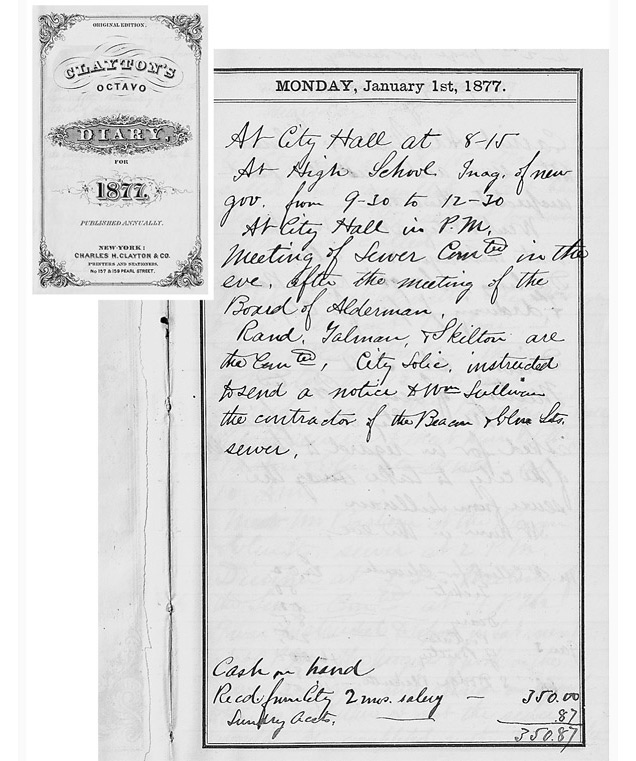 ORIGINAL EDITION.
CLAYTON'S
OCTAVO
DIARY,
FOR
1877.
PUBLISHED ANNUALLY.
NEW-YORK:
CHARLES H. CLAYTON & CO.
PRINTERS AND STATIONERS,
No 157 & 159 PEARL STREET.
MONDAY, January 1st, 1877.
At City Hall at 8-15
At High School. Inag. of new
gov. from 9-30 to 12-30
At City Hall in P.M.
Meeting of Sewer Comtee in the
eve. after the meeting of the
Board of Alderman.
Rand, Talman, & Skilton are
the Comtee, City Solic. instructed
to send a notice to Wm Sullivan
the contractor of the Beacon & Elm Sts.
sewer.
Cash on hand
Recd from City 2 mos. salery — 350.00
Sundry Accts. — .87
350.87